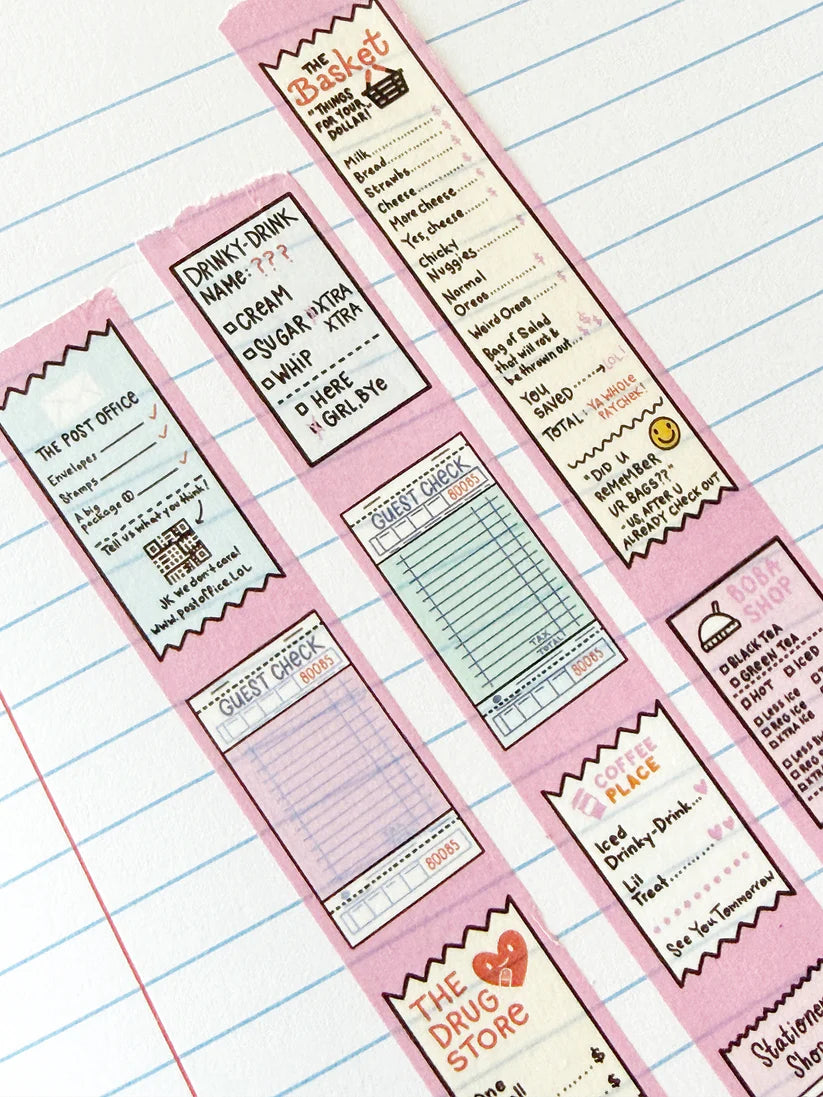 THE
Basket
"THINGS
FOR YOUR
DOLLAR!"
Milk $
Bread $
Strawbs $
Cheese $
More Cheese $
Yes, cheese $
Chicky
Nuggies $
Normal
Oreos $
Weird Oreos $
Bag of Salad
that will rot &
be thrown out $
YOU
SAVED LOL!
TOTAL: YA WHOLE
PAYCHEK!
"DID U
REMEMBER
UR BAGS??"
- US, AFTER U
ALREADY CHECK OUT
DRINKY-DRINK
NAME: ???
CREAM
SUGAR XTRA
XTRA
WHIP
HERE
GIRL, BYe
THE POST OFFICE
Envelopes
Stamps
A big
package (!)
Tell us what you think!
JK we don't care!
www.postoffice.LOL
GUEST CHECK
80085
TAX
TOTAL
80085
GUEST CHECK
80085
TAX
80085
BOBA
SHOP
BLACK TEA
GREEN TEA
HOT ICED
LESS ICE
REG ICE
XTRA ICE
LESS
REG
XTRA
COFFEE
PLACE
Iced
Drinky-Drink
Lil
Treat
See You Tommorrow
THE
DRUG
STORE
One $
$
Stationery
Shop